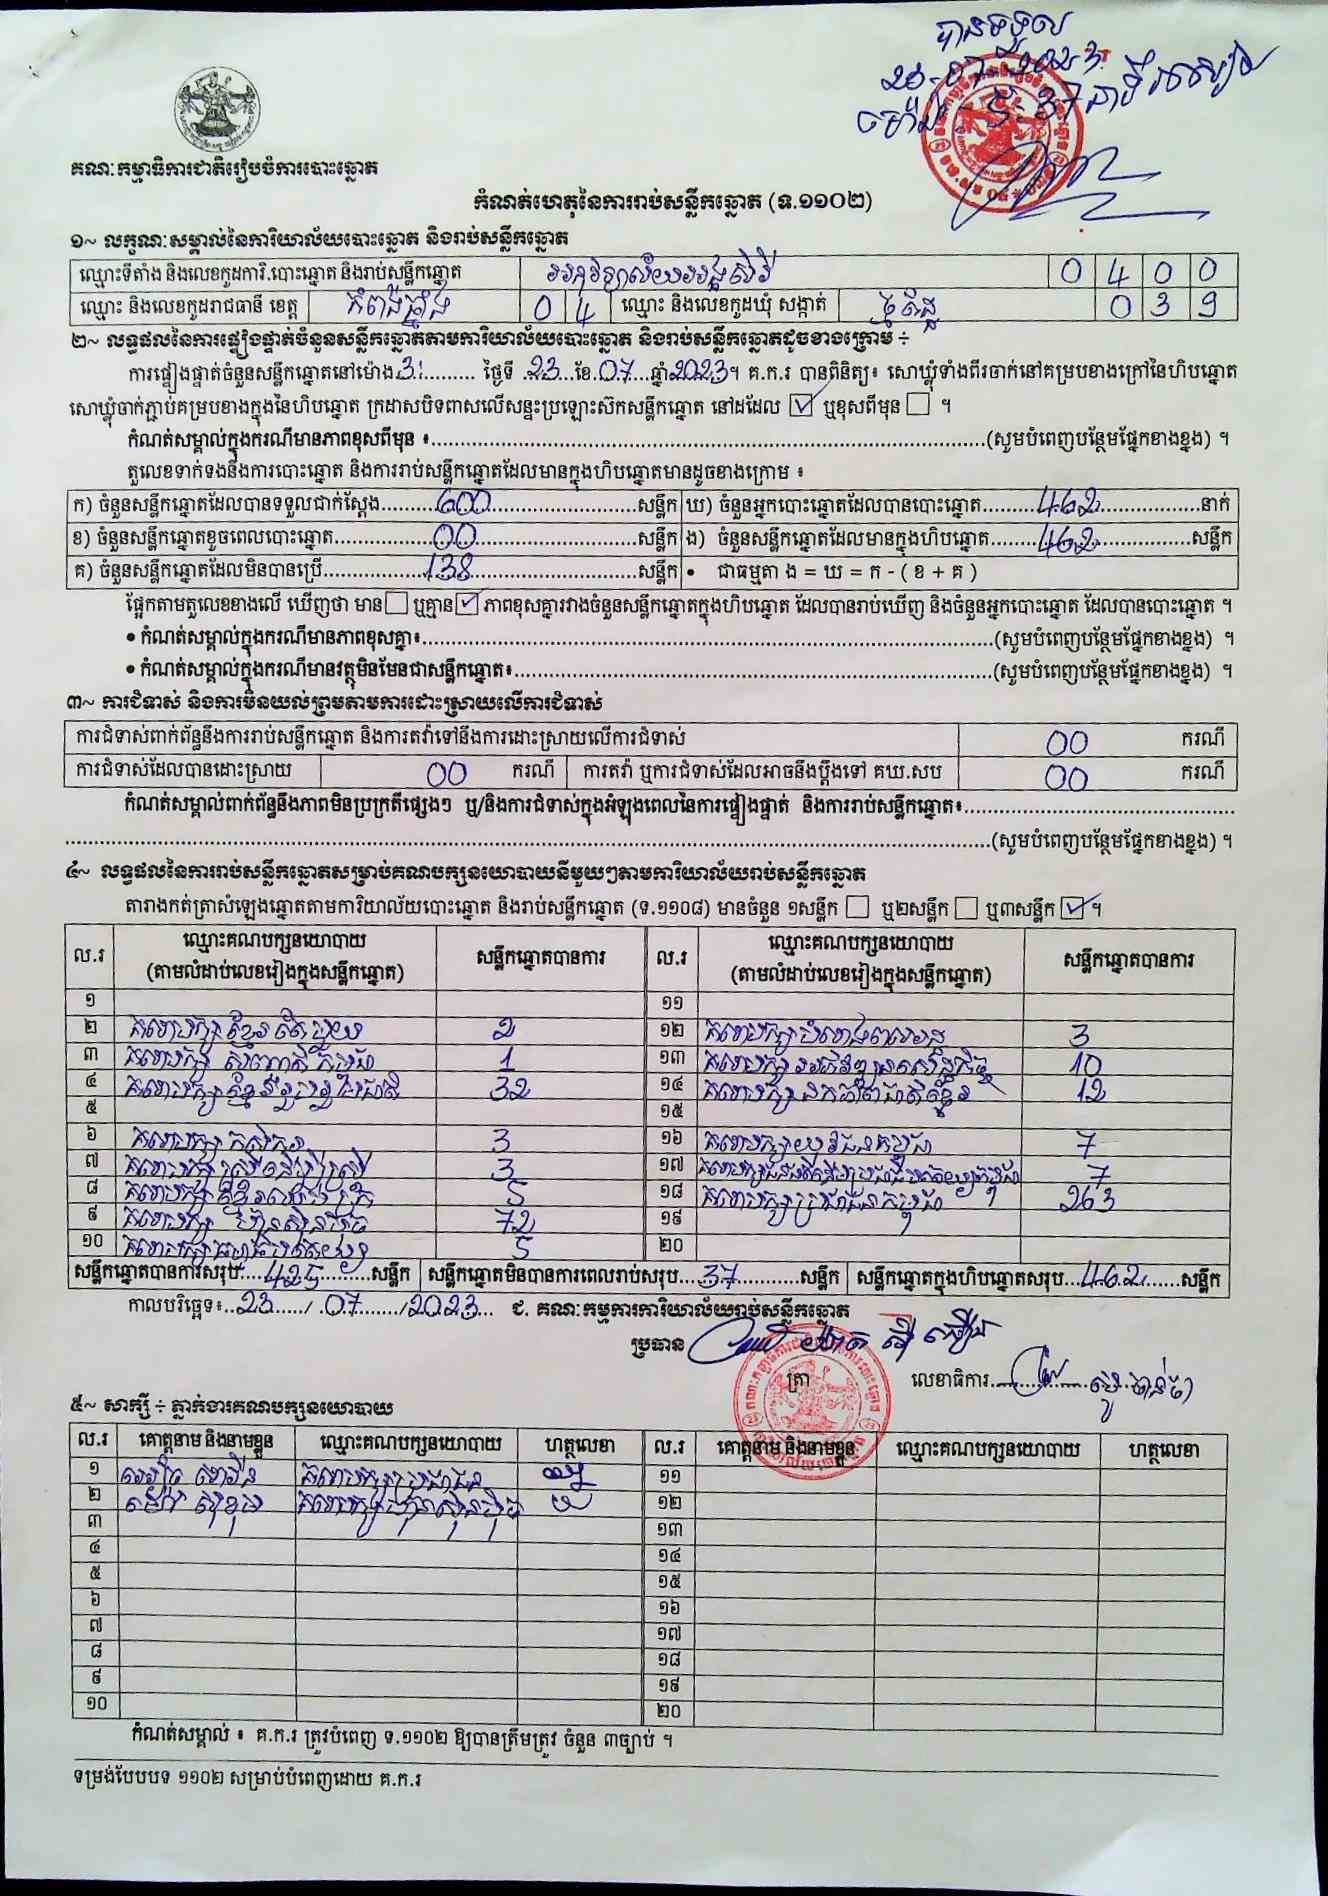 បានទទួល
គណៈកម្មាធិការជាតិរៀបចំការបោះឆ្នោត
កំណត់ហេតុនៃការរាប់សន្លឹកឆ្នោត (ទ.១១០២)
១~ លក្ខណៈសម្គាល់នៃការិយាល័យបោះឆ្នោត និងរាប់សន្លឹកឆ្នោត
ឈ្មោះទីតាំង និងលេខកូដការិ.បោះឆ្នោត និងរាប់សន្លឹកឆ្នោត 0 4 0 0
ឈ្មោះ និងលេខកូដរាជធានី ខេត្ត កំពង់ឆ្នាំង 0 4 ឈ្មោះ និងលេខកូដឃុំ សង្កាត់ 0 3 9
២~ លទ្ធផលនៃការផ្ទៀងផ្ទាត់ចំនួនសន្លឹកឆ្នោតតាមការិយាល័យបោះឆ្នោត និងរាប់សន្លឹកឆ្នោតដូចខាងក្រោម ÷
ការផ្ទៀងផ្ទាត់ចំនួនសន្លឹកឆ្នោតនៅម៉ោង 3 ថ្ងៃទី 23 ខែ 07 ឆ្នាំ 2023 ។ គ.ក.រ បានពិនិត្យ៖ សោឃ្លុំទាំងពីរចាក់នៅគម្របខាងក្រៅនៃហិបឆ្នោត
សោឃ្លុំចាក់ភ្ជាប់គម្របខាងក្នុងនៃហិបឆ្នោត ក្រដាសបិទពាសលើសន្ទះប្រឡោះស៊កសន្លឹកឆ្នោត នៅដដែល ☑ ឬខុសពីមុន ☐ ។
កំណត់សម្គាល់ក្នុងករណីមានភាពខុសពីមុន ៖ (សូមបំពេញបន្ថែមផ្នែកខាងខ្នង) ។
តួលេខទាក់ទងនឹងការបោះឆ្នោត និងការរាប់សន្លឹកឆ្នោតដែលមានក្នុងហិបឆ្នោតមានដូចខាងក្រោម ៖
ក) ចំនួនសន្លឹកឆ្នោតដែលបានទទួលជាក់ស្តែង 600 សន្លឹក ឃ) ចំនួនអ្នកបោះឆ្នោតដែលបានបោះឆ្នោត 462 នាក់
ខ) ចំនួនសន្លឹកឆ្នោតខូចពេលបោះឆ្នោត 00 សន្លឹក ង) ចំនួនសន្លឹកឆ្នោតដែលមានក្នុងហិបឆ្នោត 462 សន្លឹក
គ) ចំនួនសន្លឹកឆ្នោតដែលមិនបានប្រើ 138 សន្លឹក • ជាធម្មតា ង = ឃ = ក - ( ខ + គ )
ផ្អែកតាមតួលេខខាងលើ ឃើញថា មាន ☐ ឬគ្មាន ☑ ភាពខុសគ្នារវាងចំនួនសន្លឹកឆ្នោតក្នុងហិបឆ្នោត ដែលបានរាប់ឃើញ និងចំនួនអ្នកបោះឆ្នោត ដែលបានបោះឆ្នោត ។
• កំណត់សម្គាល់ក្នុងករណីមានភាពខុសគ្នា៖ (សូមបំពេញបន្ថែមផ្នែកខាងខ្នង) ។
• កំណត់សម្គាល់ក្នុងករណីមានវត្ថុមិនមែនជាសន្លឹកឆ្នោត៖ (សូមបំពេញបន្ថែមផ្នែកខាងខ្នង) ។
៣~ ការជំទាស់ និងការមិនយល់ព្រមតាមការដោះស្រាយលើការជំទាស់
ការជំទាស់ពាក់ព័ន្ធនឹងការរាប់សន្លឹកឆ្នោត និងការតវ៉ាទៅនឹងការដោះស្រាយលើការជំទាស់ 00 ករណី
ការជំទាស់ដែលបានដោះស្រាយ 00 ករណី ការតវ៉ា ឬការជំទាស់ដែលអាចនឹងប្តឹងទៅ គឃ.សប 00 ករណី
កំណត់សម្គាល់ពាក់ព័ន្ធនឹងភាពមិនប្រក្រតីផ្សេងៗ ឬ/និងការជំទាស់ក្នុងអំឡុងពេលនៃការផ្ទៀងផ្ទាត់ និងការរាប់សន្លឹកឆ្នោត៖
(សូមបំពេញបន្ថែមផ្នែកខាងខ្នង) ។
៤~ លទ្ធផលនៃការរាប់សន្លឹកឆ្នោតសម្រាប់គណបក្សនយោបាយនីមួយៗតាមការិយាល័យរាប់សន្លឹកឆ្នោត
តារាងកត់ត្រាសំឡេងឆ្នោតតាមការិយាល័យបោះឆ្នោត និងរាប់សន្លឹកឆ្នោត (ទ.១១០៨) មានចំនួន ១សន្លឹក ☐ ឬ២សន្លឹក ☐ ឬ៣សន្លឹក ☑ ។
ល.រ ឈ្មោះគណបក្សនយោបាយ (តាមលំដាប់លេខរៀងក្នុងសន្លឹកឆ្នោត) សន្លឹកឆ្នោតបានការ ល.រ ឈ្មោះគណបក្សនយោបាយ (តាមលំដាប់លេខរៀងក្នុងសន្លឹកឆ្នោត) សន្លឹកឆ្នោតបានការ
១ ១១
២ គណបក្សខ្មែរតែមួយ 2 ១២ គណបក្ស 3
៣ គណបក្ស 1 ១៣ គណបក្ស 10
៤ គណបក្សខ្មែររួបរួមជាតិ 32 ១៤ គណបក្ស 12
៥ ១៥
៦ គណបក្សកសិករ 3 ១៦ គណបក្សយុវជនកម្ពុជា 7
៧ គណបក្សស្ត្រីដើម្បីស្ត្រី 3 ១៧ គណបក្ស 7
៨ គណបក្ស 5 ១៨ គណបក្សប្រជាជនកម្ពុជា 263
៩ គណបក្ស ហ៊្វុនស៊ិនប៉ិច 72 ១៩
១០ គណបក្ស 5 ២០
សន្លឹកឆ្នោតបានការសរុប 425 សន្លឹក សន្លឹកឆ្នោតមិនបានការពេលរាប់សរុប 37 សន្លឹក សន្លឹកឆ្នោតក្នុងហិបឆ្នោតសរុប 462 សន្លឹក
កាលបរិច្ឆេទ៖ 23 / 07 / 2023 ជ. គណៈកម្មការការិយាល័យរាប់សន្លឹកឆ្នោត
ប្រធាន
ត្រា លេខាធិការ
៥~ សាក្សី ÷ ភ្នាក់ងារគណបក្សនយោបាយ
ល.រ គោត្តនាម និងនាមខ្លួន ឈ្មោះគណបក្សនយោបាយ ហត្ថលេខា ល.រ គោត្តនាម និងនាមខ្លួន ឈ្មោះគណបក្សនយោបាយ ហត្ថលេខា
១ គណបក្សប្រជាជន ១១
២ គណបក្សហ៊្វុនស៊ិនប៉ិច ១២
៣ ១៣
៤ ១៤
៥ ១៥
៦ ១៦
៧ ១៧
៨ ១៨
៩ ១៩
១០ ២០
កំណត់សម្គាល់ ៖ គ.ក.រ ត្រូវបំពេញ ទ.១១០២ ឱ្យបានត្រឹមត្រូវ ចំនួន ៣ច្បាប់ ។
ទម្រង់បែបបទ ១១០២ សម្រាប់បំពេញដោយ គ.ក.រ